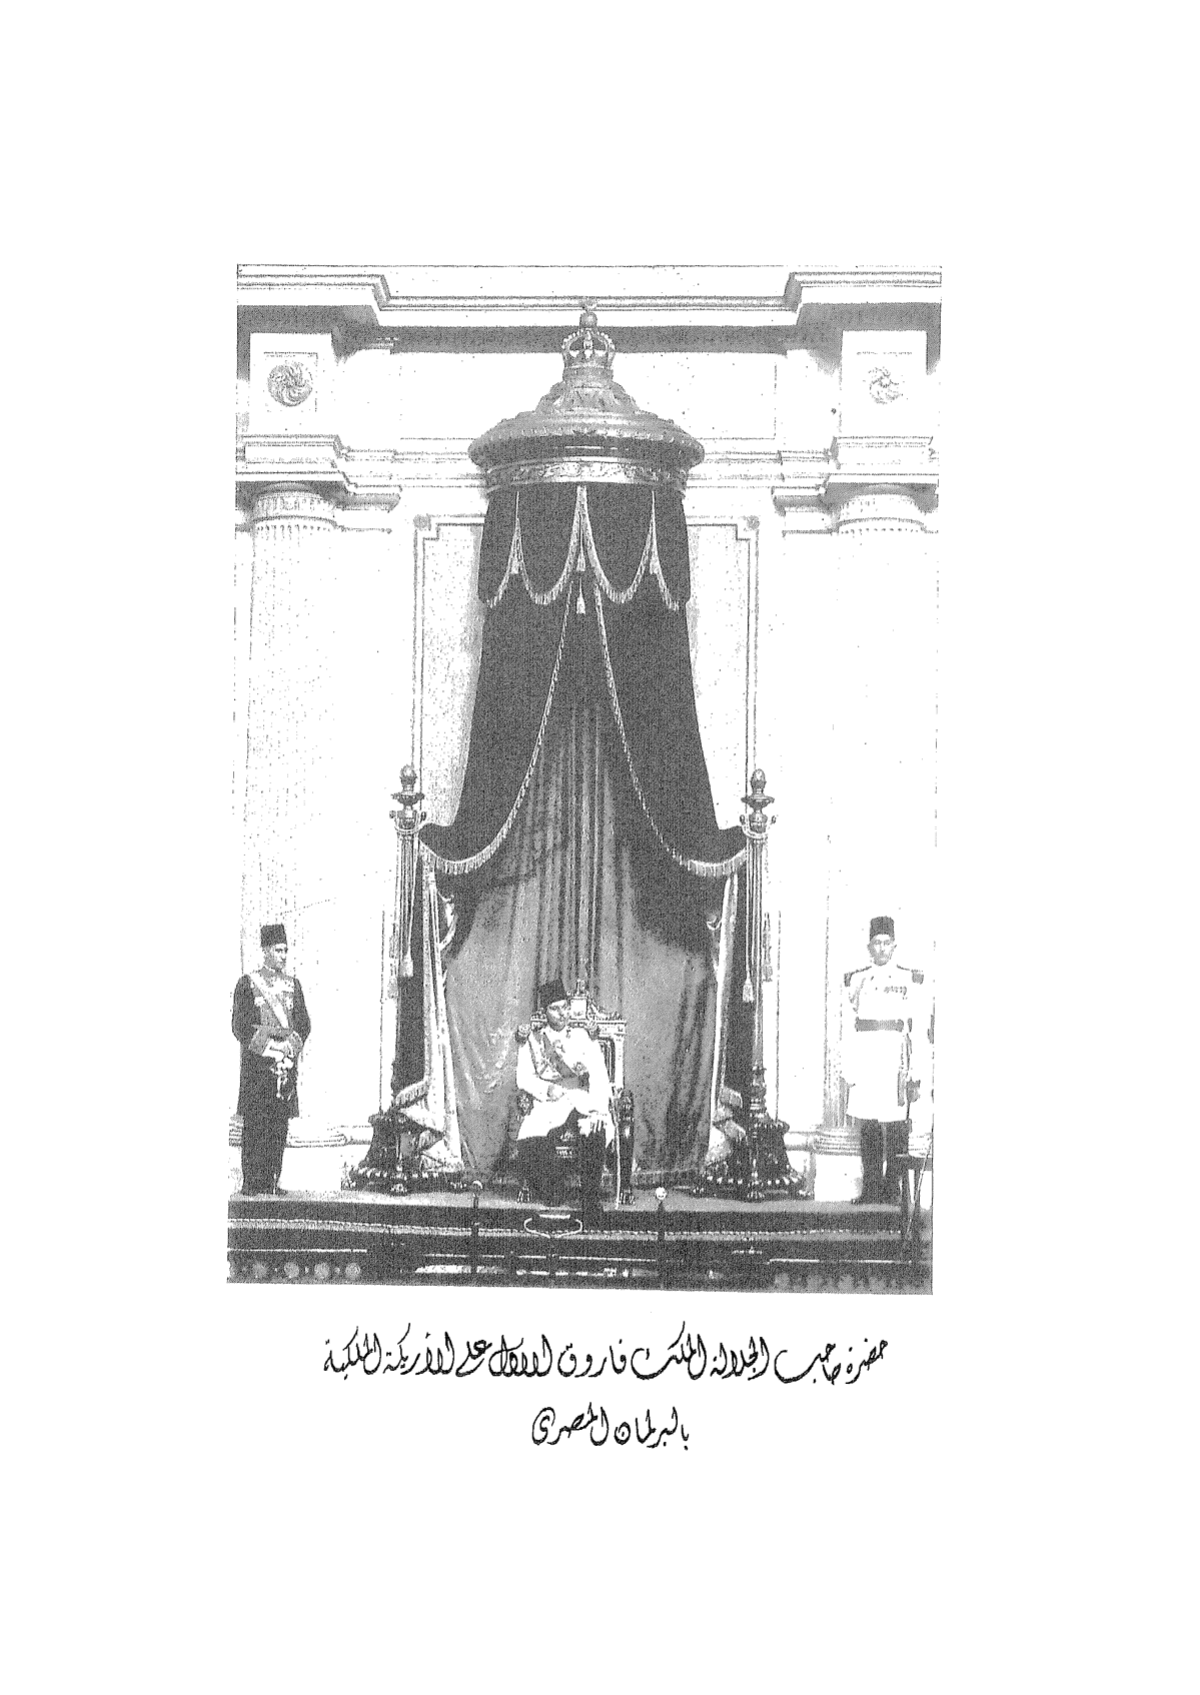 حضرة صاحب الجلالة الملك فاروق الأول على الأريكة الملكية
بالبرلمان المصرى